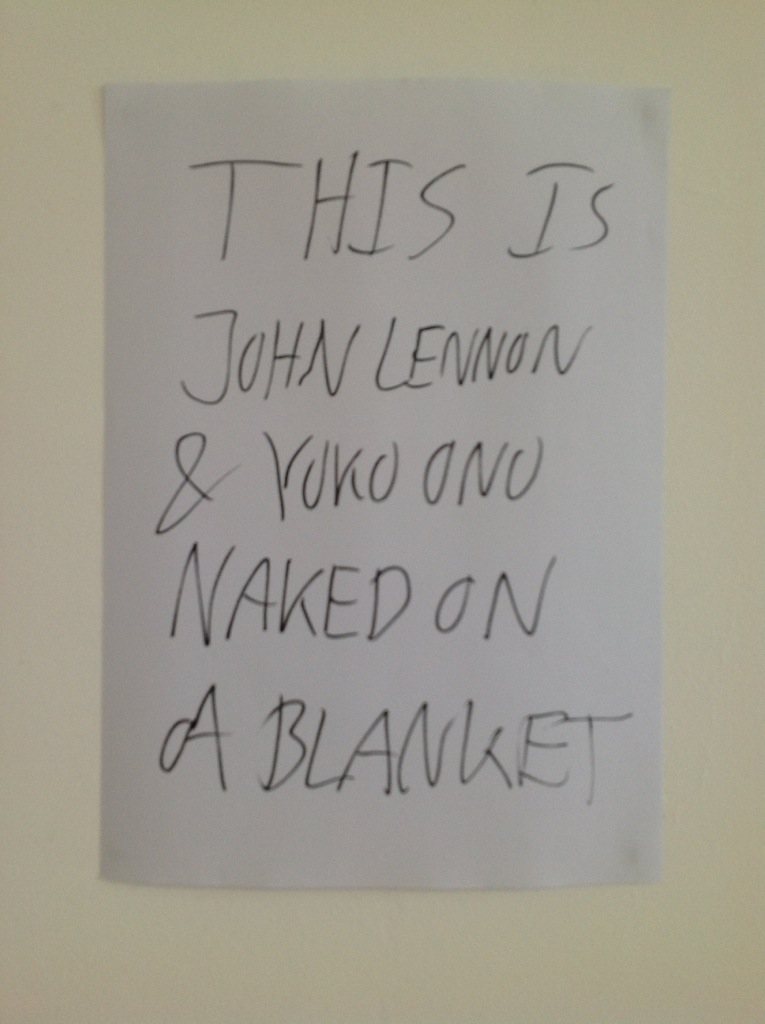 THIS IS
JOHN LENNON
& YOKO ONO
NAKED ON
A BLANKET